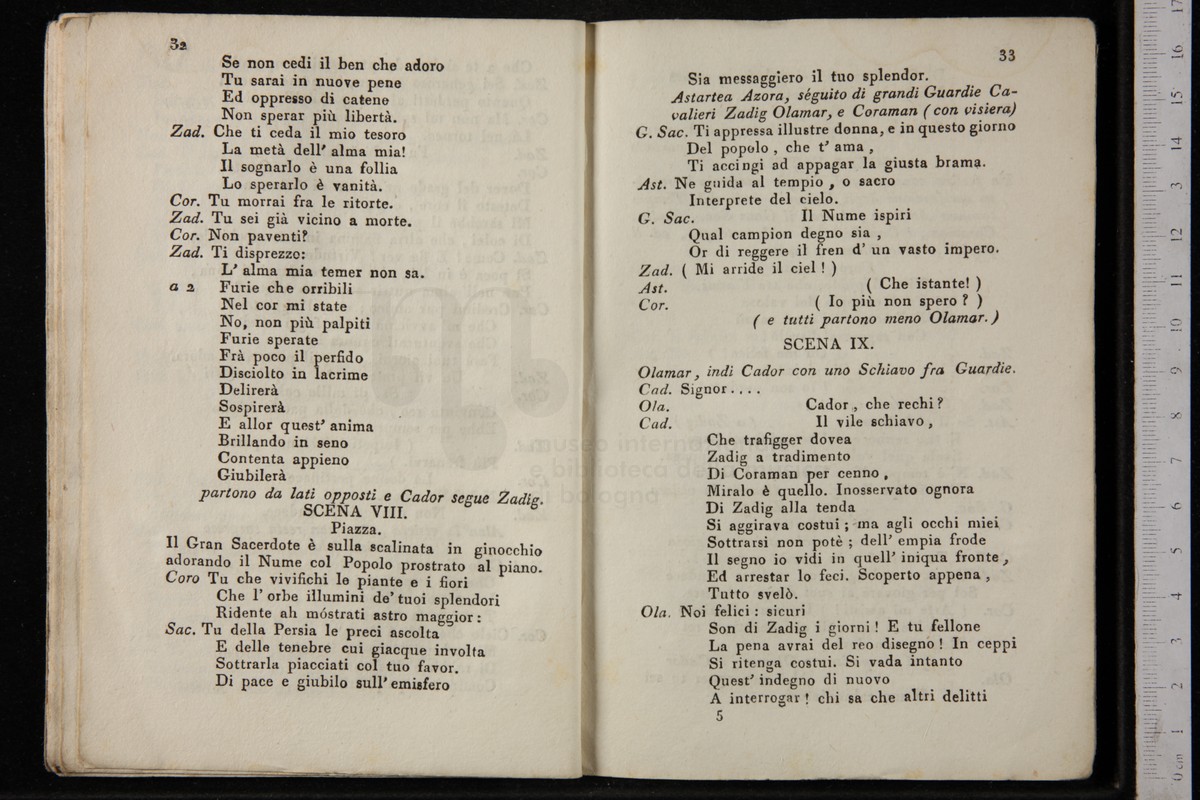 32
Se non cedi il ben che adoro
Tu sarai in nuove pene
Ed oppresso di catene
Non sperar più libertà.
Zad. Che ti ceda il mio tesoro
La metà dell' alma mia!
Il sognarlo è una follia
Lo sperarlo è vanità.
Cor. Tu morrai fra le ritorte.
Zad. Tu sei già vicino a morte.
Cor. Non paventi?
Zad. Ti disprezzo:
L' alma mia temer non sa.
a 2 Furie che orribili
Nel cor mi state
No, non più palpiti
Furie sperate
Frà poco il perfido
Disciolto in lacrime
Delirerà
Sospirerà
E allor quest' anima
Brillando in seno
Contenta appieno
Giubilerà
partono da lati opposti e Cador segue Zadig.
SCENA VIII.
Piazza.
Il Gran Sacerdote è sulla scalinata in ginocchio
adorando il Nume col Popolo prostrato al piano.
Coro Tu che vivifichi le piante e i fiori
Che l' orbe illumini de' tuoi splendori
Ridente ah móstrati astro maggior:
Sac. Tu della Persia le preci ascolta
E delle tenebre cui giacque involta
Sottrarla piacciati col tuo favor.
Di pace e giubilo sull' emisfero
33
Sia messaggiero il tuo splendor.
Astartea Azora, séguito di grandi Guardie Ca-
valieri Zadig Olamar, e Coraman ( con visiera)
G. Sac. Ti appressa illustre donna, e in questo giorno
Del popolo , che t' ama ,
Ti accingi ad appagar la giusta brama.
Ast. Ne guida al tempio , o sacro
Interprete del cielo.
G. Sac. Il Nume ispiri
Qual campion degno sia ,
Or di reggere il fren d' un vasto impero.
Zad. ( Mi arride il ciel ! )
Ast. ( Che istante! )
Cor. ( Io più non spero ? )
( e tutti partono meno Olamar. )
SCENA IX.
Olamar, indi Cador con uno Schiavo fra Guardie.
Cad. Signor . . . .
Ola. Cador , che rechi ?
Cad. Il vile schiavo ,
Che trafigger dovea
Zadig a tradimento
Di Coraman per cenno ,
Miralo è quello. Inosservato ognora
Di Zadig alla tenda
Si aggirava costui ; ma agli occhi miei
Sottrarsi non potè ; dell' empia frode
Il segno io vidi in quell' iniqua fronte ,
Ed arrestar lo feci. Scoperto appena ,
Tutto svelò.
Ola. Noi felici : sicuri
Son di Zadig i giorni ! E tu fellone
La pena avrai del reo disegno ! In ceppi
Si ritenga costui. Si vada intanto
Quest' indegno di nuovo
A interrogar ! chi sa che altri delitti
5
museo internaz
e biblioteca de
di bologna
0 cm 1 2 3 4 5 6 7 8 9 10 11 12 13 14 15 16 17